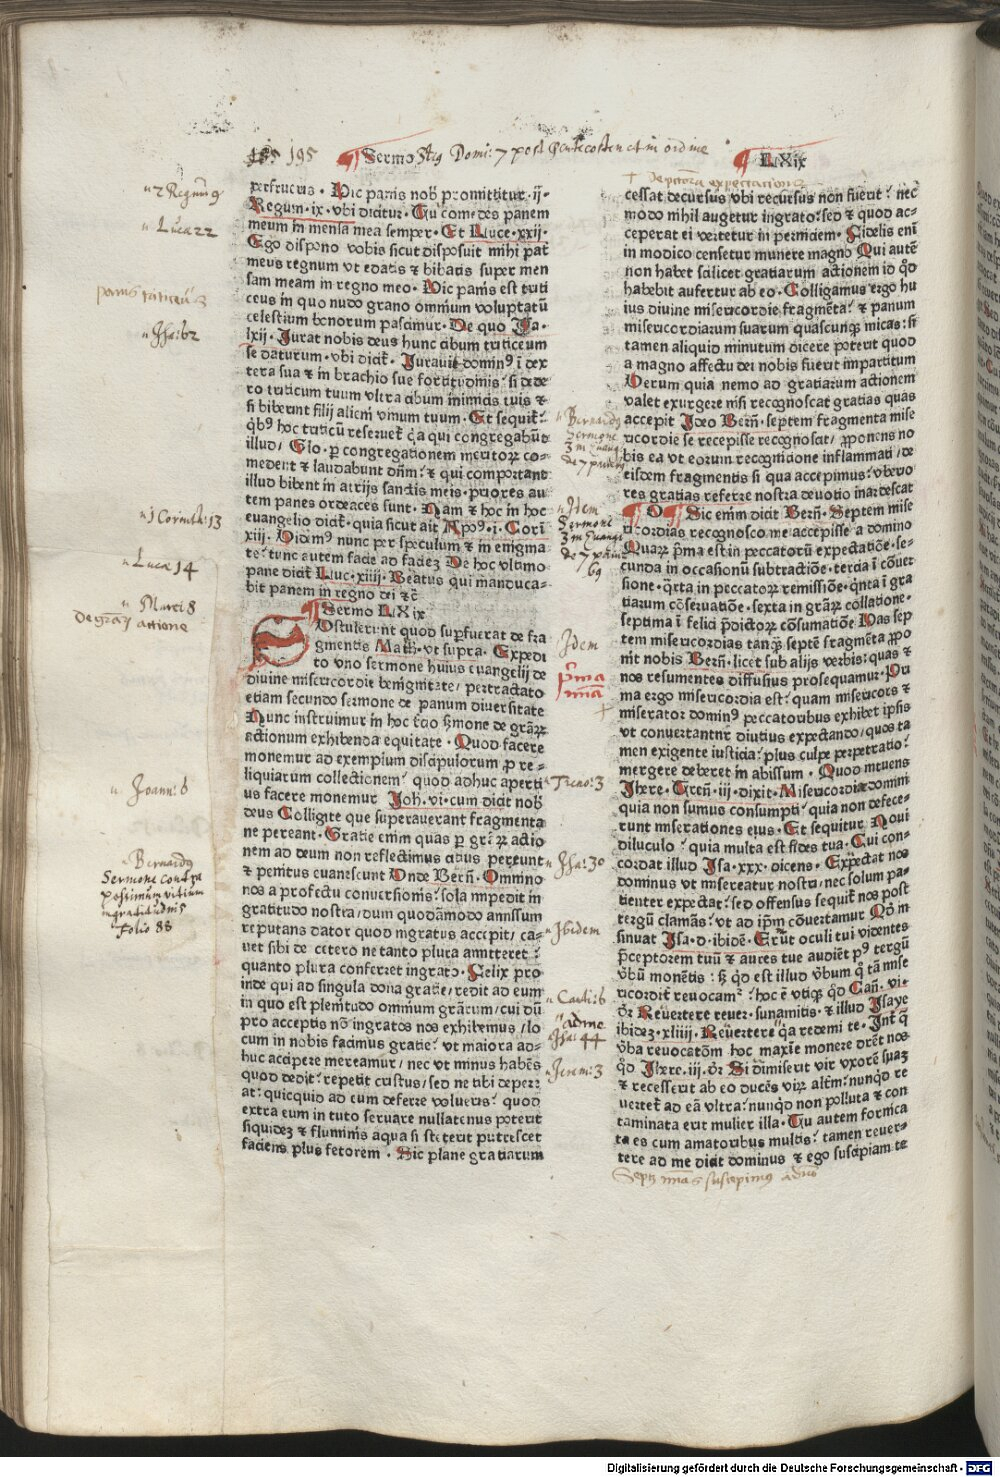 195 195
Sermo 3tiꝯ Domi: 7 post Pentecosten et in ordine
LXix
perfruens. Hic panis nob promittitur. ij.
Regum. ix. vbi dicitur. Tu comedes panem
meum in mensa mea semper. Et Luce. xxij.
Ego dispono vobis sicut disposuit mihi pať
meus regnum vt edatis ⁊ bibatis super men
sam meam in regno meo. Hic panis est triti
ceus in quo nudo grano omnium voluptatū
celestium bonorum pascimur. De quo Isa.
lxij. Jurat nobis deus hunc cibum triticeum
se daturum. vbi dicit̄. Jurauit domin⁹ ī dex
tera sua ⁊ in brachio sue fortitudinis? si dede
ro triticum tuum vltra cibum inimicis tuis ⁊
si biberint filij alieni vinum tuum. Et sequit̄?
qꝫ hoc triticū reseruet̄ qͥa qui congregabūt
illud/ Glo. ꝑ congregationem meritoꝝ co-
medent ⁊ laudabunt dn̄m? ⁊ qui comportant
illud bibent in atrijs sanctis meis. priores au
tem panes ordeaces sunt. Nam ⁊ hoc in hoc
euangelio dicit̄. quia sicut ait Apo⁹. i. Corī
xiij. Uidim⁹ nunc per speculum ⁊ in enigma
te? tunc autem facie ad faciē. De hoc vltimo
pane dicit̄ Luc. xiiij. Beatus qui manduca-
bit panem in regno dei ⁊č
Sermo LXix
Sustulerunt quod suꝑfuerat de fra
gmentis Math. vt supra. Expedi
to vno sermone huius euangelij de
diuine misericordie benignitate/ pertractato
etiam secundo sermone de panum diuersitate
Nunc instruimur in hoc t̄cio ẜmone de grāꝝ
actionum exhibenda equitate. Quod facere
monemur ad exemplum discipulorum ꝓ re-
liquiarum collectionem? quod adhuc aperti
us facere monemur Joh. vi. cum dicit nob
deus Colligite que superauerunt fragmenta
ne pereant. Gratie enim quas ꝑ grāꝝ actio
nem ad deum non reflectimus citius pereunt
⁊ penitus euanescunt Unde Berñ. Omnino
nos a profectu conuersionis? sola impedit in
gratitudo nostra/ dum quodāmodo amissum
reputans dator quod ingratus accepit/ ca-
uet sibi de cetero ne tanto plura amitteret?
quanto plura conferret ingrato. Felix pro
inde qui ad singula dona gratie/ redit ad eum
in quo est plenitudo omnium grārum/ cui dū
pro acceptis nō ingratos nos exhibemus/ lo
cum in nobis facimus gratie? vt maiora ad-
huc accipere mereamur/ nec vt minus habēs
quod dedit? repetit custus/ sed ne tibi depere
at? quicquid ad eum deferre volueris? quod
extra eum in tuto seruare nullatenus poterit
siquidem ⁊ fluminis aqua si steterit putrescet
faciens plus fetorem. Sic plane gratiarum
cessat decursus vbi recursus non fuerit? nec
modo nihil augetur ingrato? sed ⁊ quod ac-
ceperat ei vertetur in perniciem. Fidelis eni
in modico censetur munere magno Qui autē
non habet scilicet gratiarum actionem id qd̄
habebit aufertur ab eo. Colligamus ergo hu
ius diuine misericordie fragmēta? ⁊ panum
misericordiarum suarum quascunqꝫ micas? si
tamen aliquid minutum dicere poterit quod
a magno affectu dei nobis fuerit impartitum
Uerum quia nemo ad gratiarum actionem
valet exurgere nisi recognoscat gratias quas
accepit Ideo Berñ. septem fragmenta mise
ricordie se recepisse recognoscat/ ꝓponens no
bis ea vt eorum recognitione inflammati/ de
eisdem fragmentis si qua accepimus? vbero
res gratias referre nostra deuotio inardescat
D Sic enim dicit Berñ. Septem mise
ricordias recognosco me accepisse a domino
Quaꝝ pͥma est in peccatorū expectatiōe. se-
cunda in occasionū subtractiōe. tercia ī cōuer
sione. qͣrta in peccatoꝝ remissiōe. qͥnta ī gra
tiarum cōseruatiōe. sexta in grāꝝ collatione.
septima ī felici p̄dictoꝝ cōsumatiōe Has sep
tem misericordias tanqͣꝫ septē fragmēta ꝓpo
nit nobis Berñ. licet sub alijs verbis? quas ⁊
nos resumentes diffusius prosequamur. Pri
ma ergo misericordia est? quam misericors ⁊
miserator domin⁹ peccatoribus exhibet ipsis
vt conuertantur diutius expectando/ quos ta
men exigente iusticia? plus culpe perpetratio?
mergere deberet in abissum. Quod intuens
Jhere. Tren̄. iij. dixit. Misericordie domini
quia non sumus consumpti? quia non defece-
runt miserationes eius. Et sequitur Noui
diluculo? quia multa est fides tua. Cui con-
cordat illud Isa. xxx. dicens. Expectat nos
dominus vt misereatur nostri/ nec solum pa-
tienter expectat? sed offensus sequit̄ nos post
tergū clamās? vt ad ip̄m cōuertamur Qd̄ in
sinuat Isa. d. ibidē. Erūt oculi tui videntes
p̄ceptorem tuū ⁊ aures tue audiēt p⁹ tergū
ṽbū monētis? sꝫ qd̄ est illud ṽbum qͥ tā mise
ricordit̄ reuocam²? hoc ē vtiqꝫ qd̄ Can̄. vi.
dr̄ Reuertere reuer. sunamitis. ⁊ illud Isaye
ibidez. xliiij. Reuertere qͥa redemi te. Int̄ qͥ
ṽba reuocatōm hoc maxīe monere dr̄et nos
qd̄ Jhere. iij. dr̄ Si dimiserit vir vxorē suaꝫ
⁊ recesserit ab eo ducēs virꝝ altm̄? nunqd̄ re
uertet̄ ad eā vltra? nunqd̄ non polluta ⁊ con
taminata erit mulier illa. Tu autem fornica
ta es cum amatoribus multis? tamen reuer-
tere ad me dicit dominus ⁊ ego suscipiam te
2 Regum 9
Luca 22
panis triticeus 3
Isa: 62
1 Corinth: 13
Luca 14
Marci 8
De grāꝝ actione
Joann: 6
Bernardꝯ
Sermone contra
pessimum vitium
ingratitudinis
folio 88
Idem
p̄ma
mīa
Treno: 3
Isa: 30
Ibidem
Canti: 6
ad me
Isa: 44
Jerem: 3
Digitalisierung gefördert durch die Deutsche Forschungsgemeinschaft - DFG